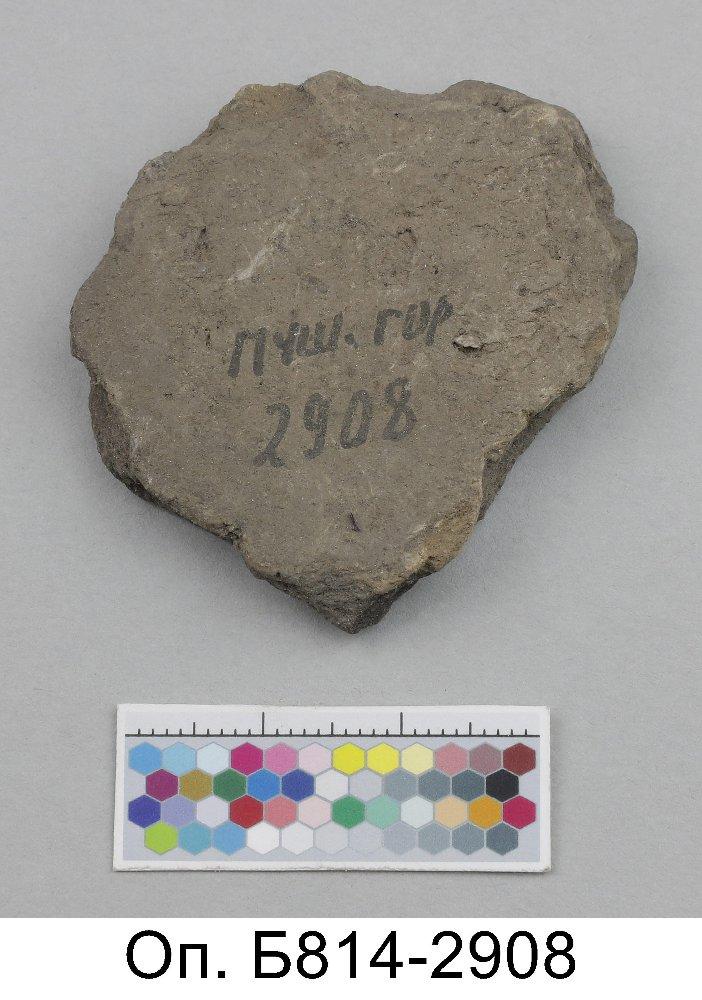 ПУШ. ГОР
2908
Оп. Б814-2908